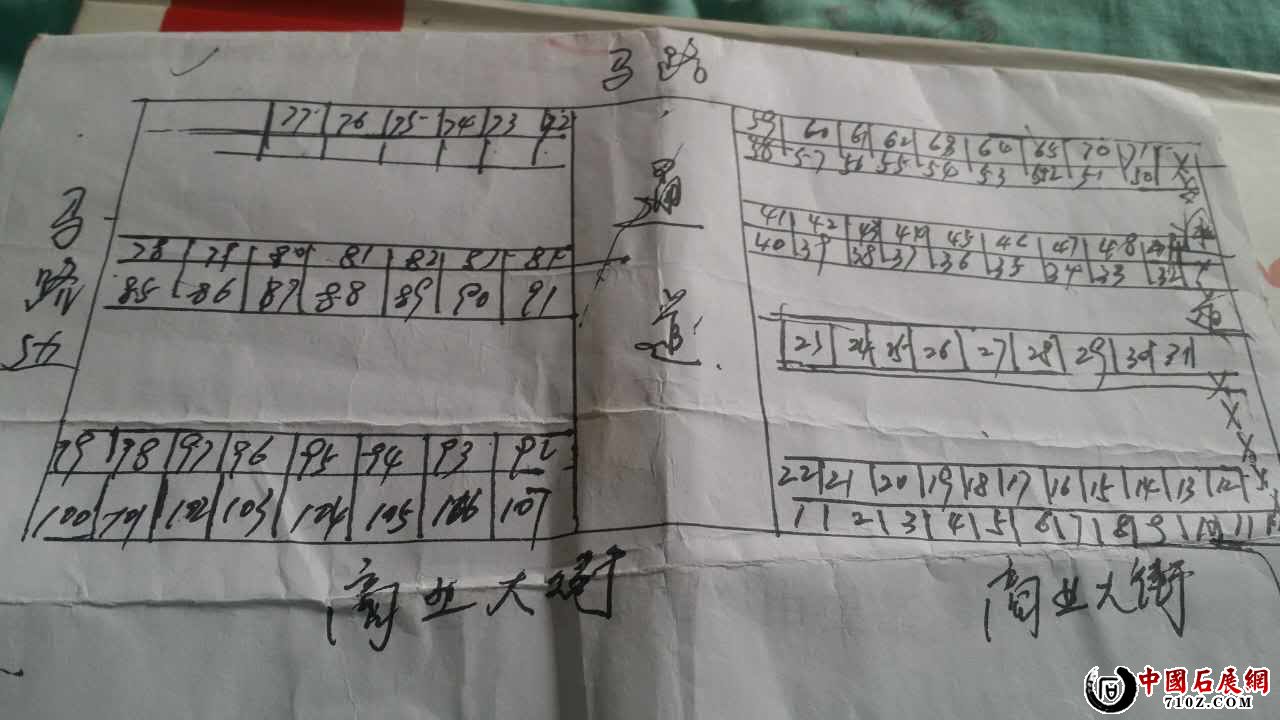 马路
77 76 75 74 73 72
59 60 61 62 63 64 65 70 71
58 57 56 55 54 53 52 51 50
马路
通道
41 42 43 44 45 46 47 48
40 39 38 37 36 35 34 33 32
78 79 80 81 82 83 84
85 86 87 88 89 90 91
23 24 25 26 27 28 29 30 31
99 98 97 96 95 94 93 92
100 101 102 103 104 105 106 107
22 21 20 19 18 17 16 15 14 13 12
1 2 3 4 5 6 7 8 9 10 11
商业大街
商业大街
中國石展網
710Z.COM